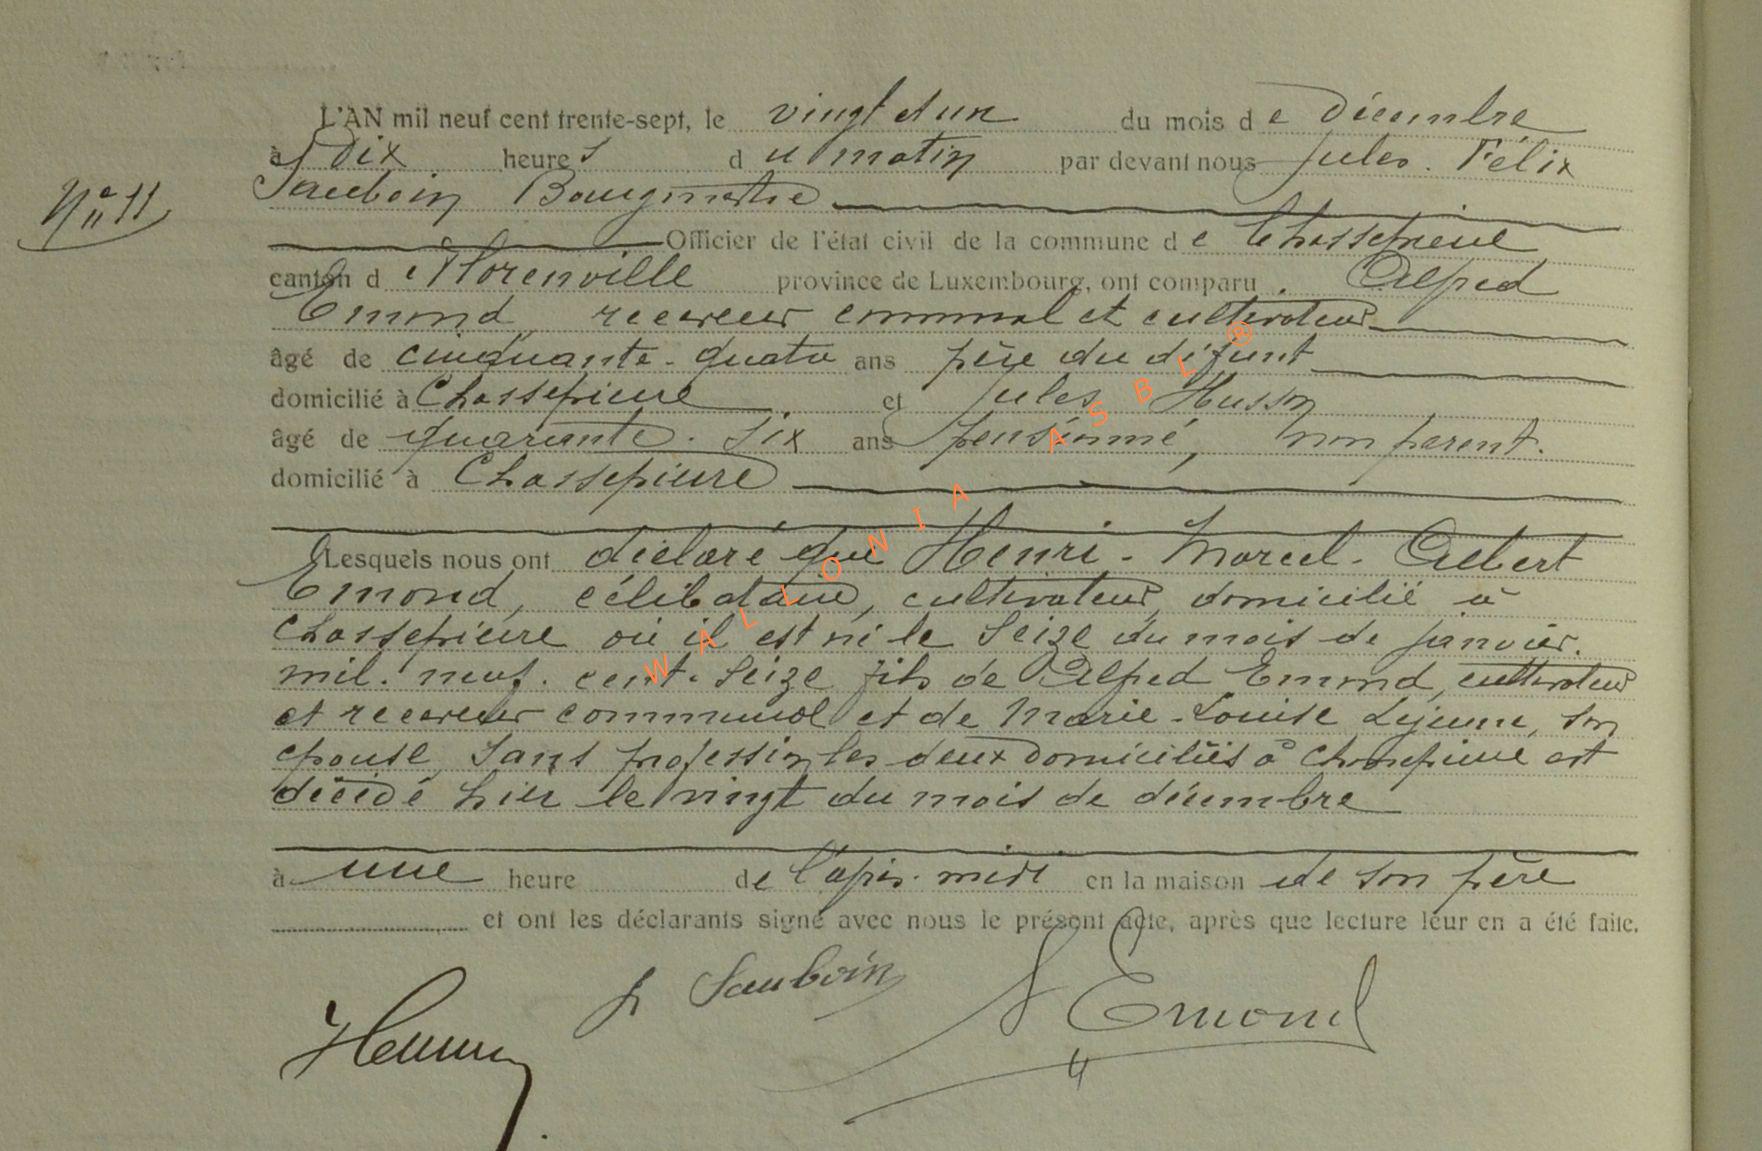 L'AN mil neuf cent trente-sept, le vingt et un du mois de Décembre
à Dix heures du matin par devant nous Jules. Félix
Sauboin Bourgmestre
Officier de l'état civil de la commune de Chassepierre
canton de Florenville province de Luxembourg, ont comparu. Alfred
Emond, receveur communal et cultivateur
âgé de cinquante-quatre ans père du défunt
domicilié à Chassepierre et Jules Husson
âgé de quarante-six ans pensionné, non parent.
domicilié à Chassepierre
Lesquels nous ont déclaré que Henri-Marcel-Albert
Emond, célibataire, cultivateur, domicilié à
Chassepierre où il est né le seize du mois de janvier.
mil. neuf. cent. seize fils de Alfred Emond, cultivateur
et receveur communal et de Marie-Louise Lejeune, son
épouse, sans profession, les deux domiciliés à Chassepierre est
décédé hier le vingt du mois de décembre
à une heure de l'après-midi en la maison de son père
et ont les déclarants signé avec nous le présent acte, après que lecture leur en a été faite.
N° 11
J Sauboin
A Emond
JHusson
WALLONIA ASBL ®